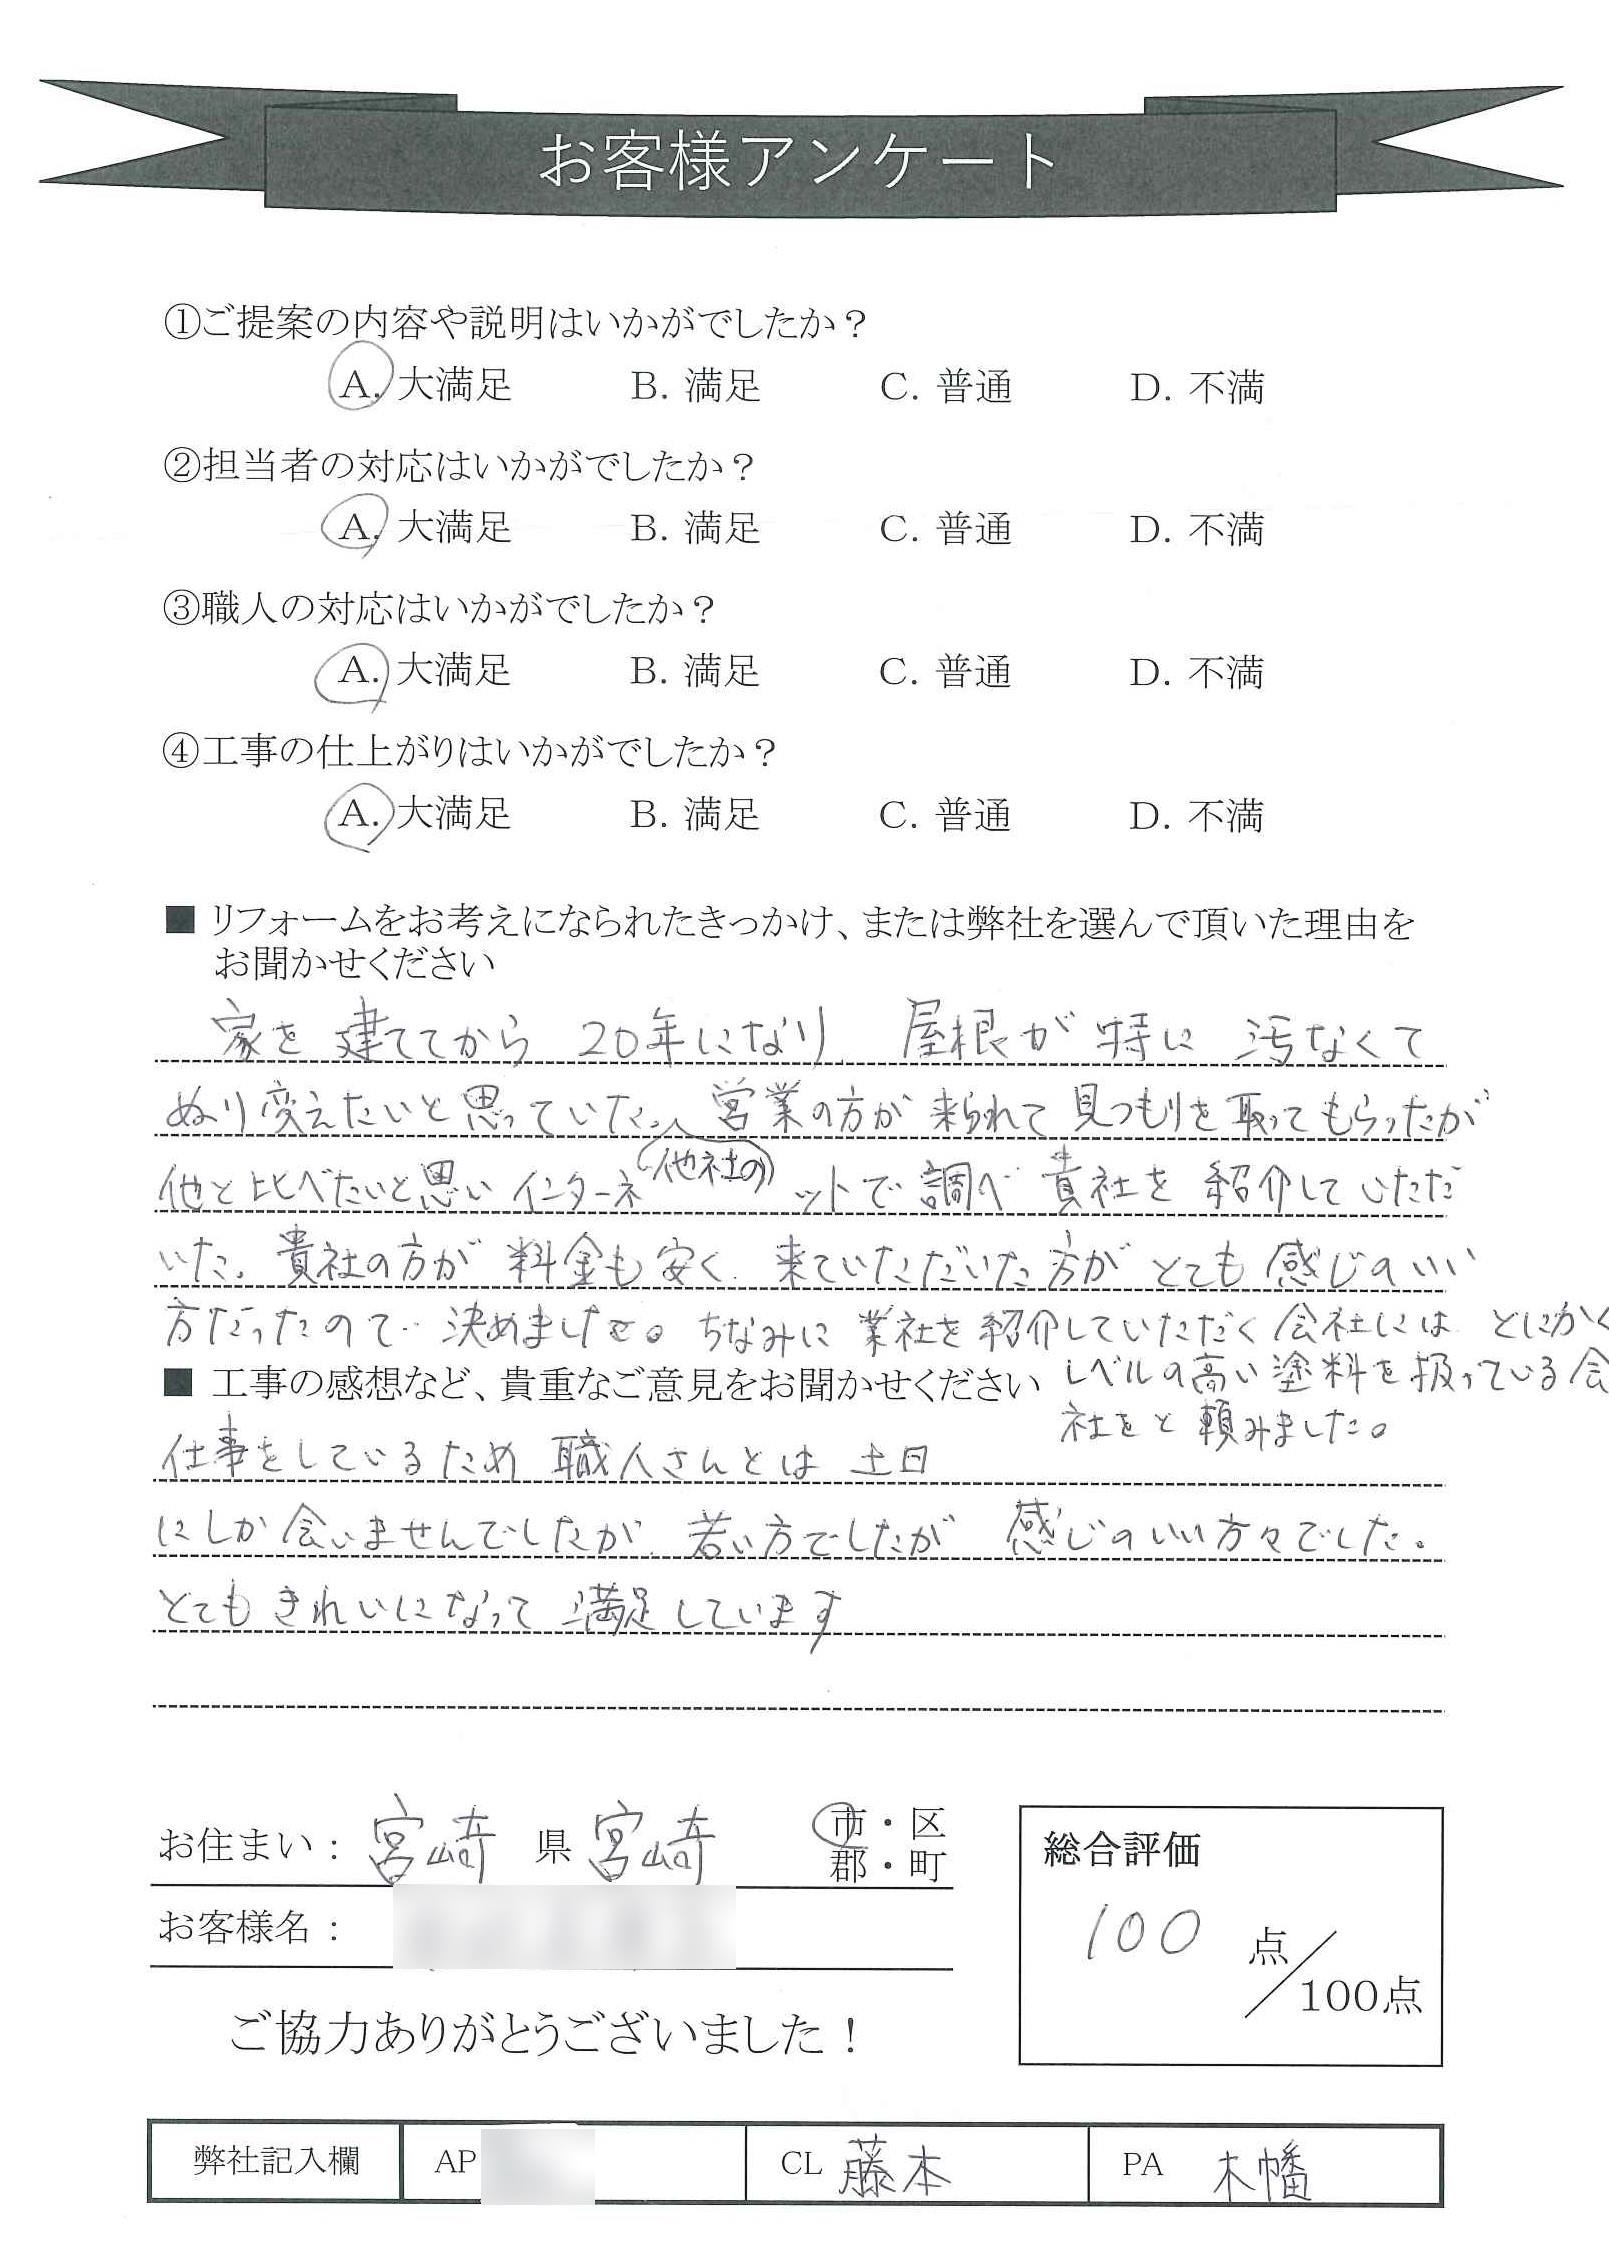 お客様アンケート
①ご提案の内容や説明はいかがでしたか？
A. 大満足 B. 満足 C. 普通 D. 不満
②担当者の対応はいかがでしたか？
A. 大満足 B. 満足 C. 普通 D. 不満
③職人の対応はいかがでしたか？
A. 大満足 B. 満足 C. 普通 D. 不満
④工事の仕上がりはいかがでしたか？
A. 大満足 B. 満足 C. 普通 D. 不満
■ リフォームをお考えになられたきっかけ、または弊社を選んで頂いた理由を
お聞かせください
家を建ててから 20年になり、屋根が特に汚なくて
ぬり変えたいと思っていた。営業の方が来られて見つもりを取ってもらったが
他社の
他と比べたいと思いインターネットで調べ 貴社を紹介していただ
いた。貴社の方が料金も安く、来ていただいた方がとても感じのいい
方だったので 決めました。ちなみに業社を紹介していただく会社には とにかく
レベルの高い塗料を扱っている会
社をと頼みました。
■ 工事の感想など、貴重なご意見をお聞かせください
仕事をしているため 職人さんとは 土日
にしか会いませんでしたが、若い方でしたが 感じのいい方々でした。
とてもきれいになって満足しています
お住まい： 宮崎 県 宮崎 市・区
郡・町
お客様名：
総合評価
100 点／100点
ご協力ありがとうございました！
弊社記入欄 AP CL 藤本 PA 木幡